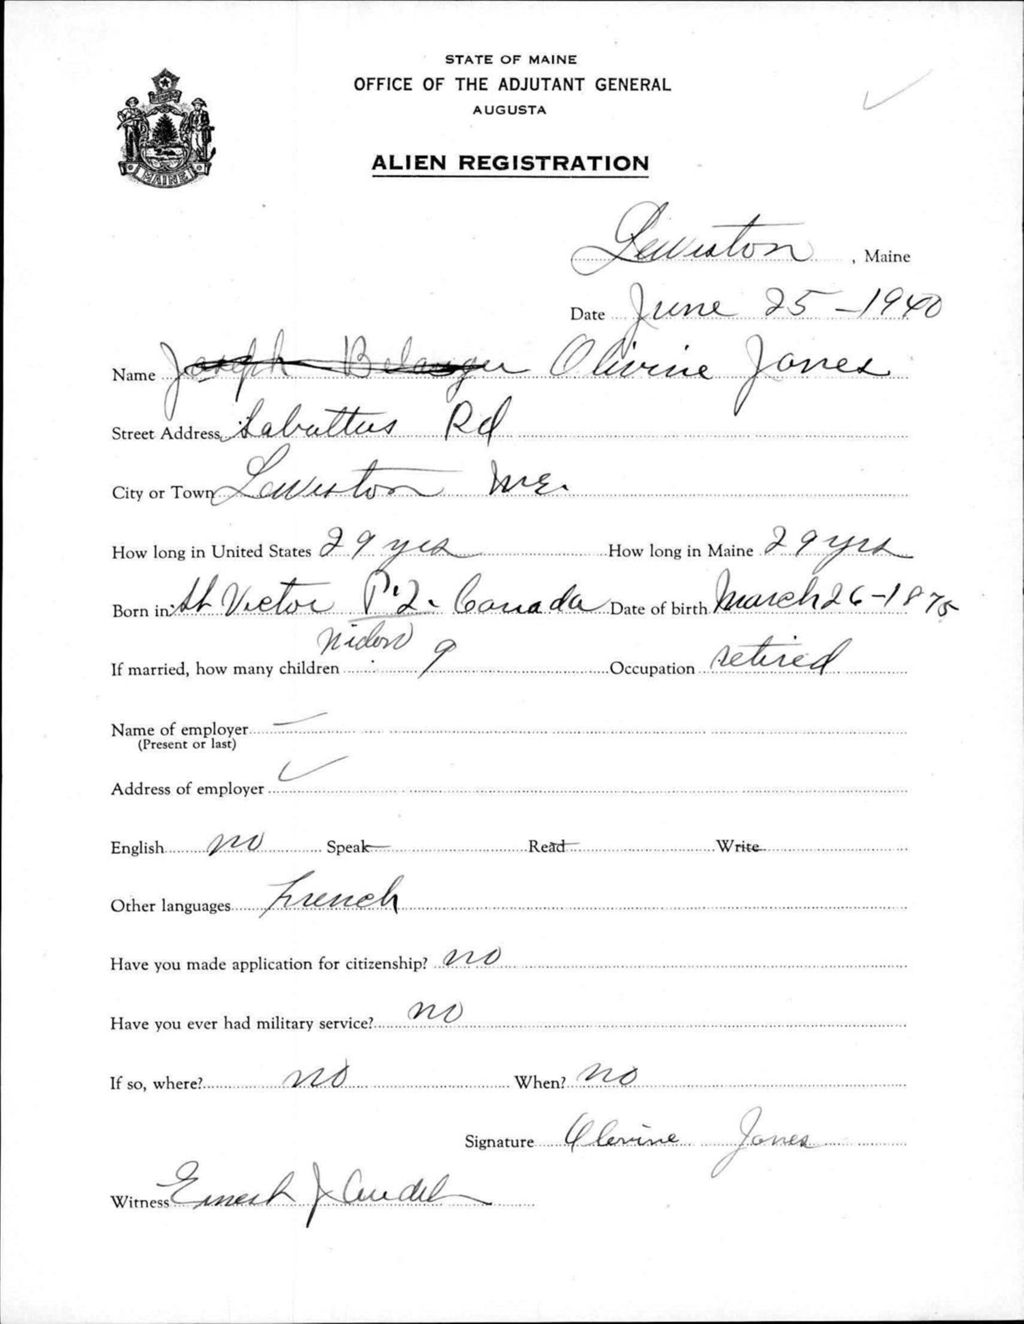 STATE OF MAINE
OFFICE OF THE ADJUTANT GENERAL
AUGUSTA
MAINE
ALIEN REGISTRATION
Lewiston, Maine
Date June 25-1940
Name Joseph Belanger Olivine Jones
Street Address Sabattus Rd
City or Town Lewiston Me.
How long in United States 29 yrs How long in Maine 29 yrs
Born in St Victor P.Q. Canada Date of birth March 26-1875
Widow
If married, how many children 9 Occupation retired
Name of employer
(Present or last)
Address of employer
English no Speak Read Write
Other languages French
Have you made application for citizenship? no
Have you ever had military service? no
If so, where? no When? no
Signature Olevine Jones
Witness Ernest J